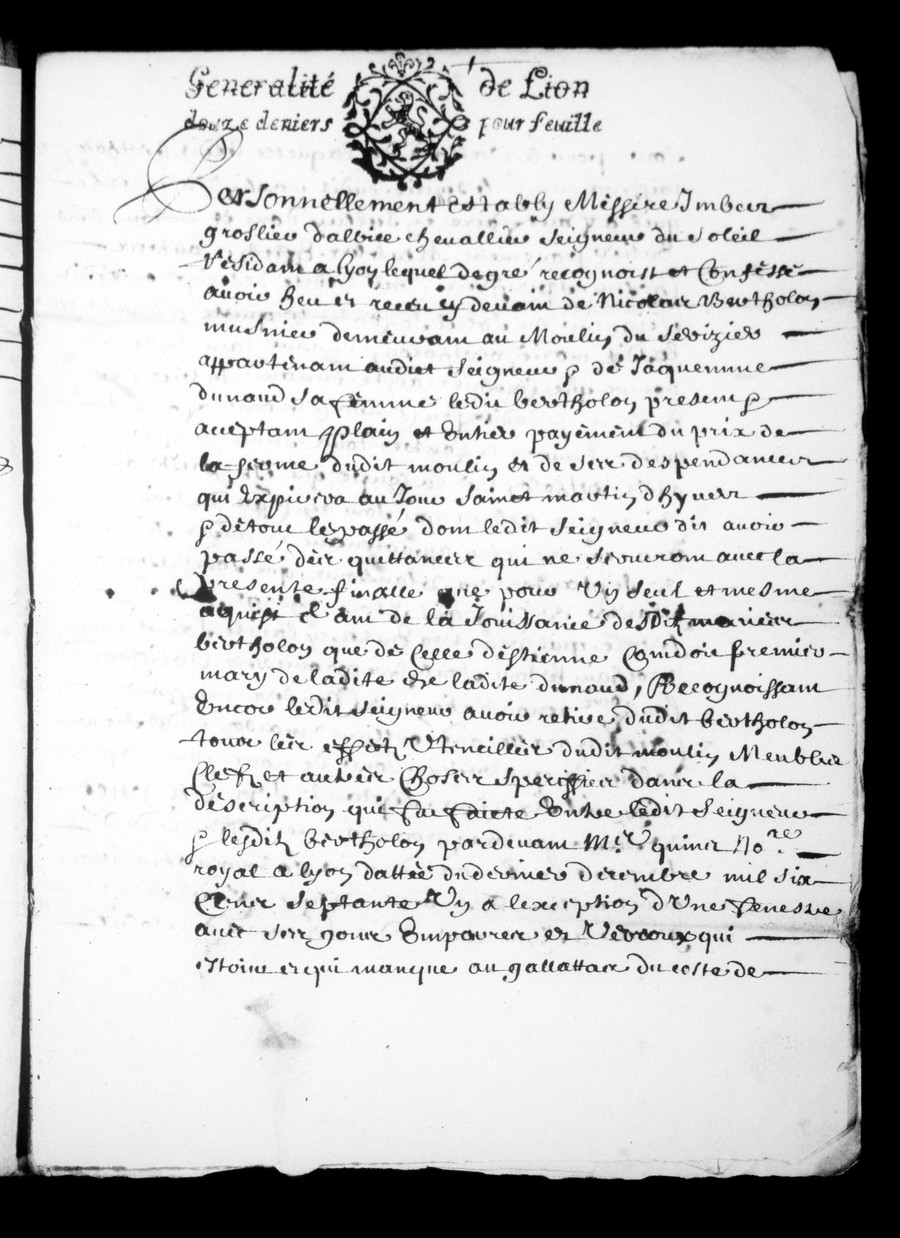 Generalité de Lion
douze deniers pour feuille
Personnellement estably Messire Imbert
groslier dalbise chevallier seigneur du soleil
Résidant a lyon lequel de gré recognoist et Confesse
avoir heu et receu cy devant de Nicolas Bertholon
musnier demeurant au Moulin du
appartenant audict seigneur p de Jaquemme
dunaud sa femme ledit bertholon present p
acceptant plain et Entier payement du prix de
la ferme dudit moulin et de ses despendances
qui Expirera au Jour sainct martin dhyver
p de tout le passé dont ledit seigneur dit avoir
passé des quittances qui ne serviront avec la
presente finalle que pour Un seul et mesme
acquist t ant de la Jouissance desdit mariés
bertholon que de Celle destienne Coindoit premier
mary de ladite de ladite dunaud, Recognoissant
Encor ledit seigneur avoir retiré dudit bertholon
tous les effectz Utencilles dudit moulin Meubles
Clefz et autres Choses speciffiées dans la
description qui fut faicte Entre ledit seigneur
p lesditz bertholon pardevant Mr quinet Nore
royal a lyon dattée du dernier décembre mil six
Cens septante Un a lexception d'Une fenestre
avec ses gons Emparres et Verroux qui
estoit et qui manque au gallattas du costé de